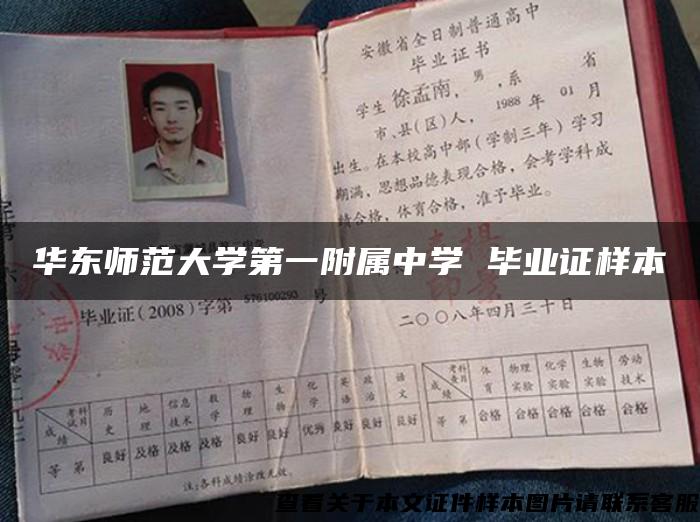 安徽省全日制普通高中
毕业证书
学生徐孟南，男，系 省
市、县(区)人，1988年01月
出生。在本校高中部(学制三年)学习
期满，思想品德表现合格，会考学科成
绩合格，体育合格，准予毕业。
华东师范大学第一附属中学 毕业证样本
毕业证(2008)字第576100293号
二〇〇八年四月三十日
考试科目 历史 地理 信息技术 数学 物理 生物 化学 英语 政治 语文
成绩
等第 良好 及格 及格 及格 良好 良好 优秀 良好 良好 良好
注:各科成绩涂改无效。
考查科目 体育 物理实验 化学实验 生物实验 劳动技术
成绩
等第 合格 合格 合格 合格 合格
查看关于本文证件样本图片请联系客服